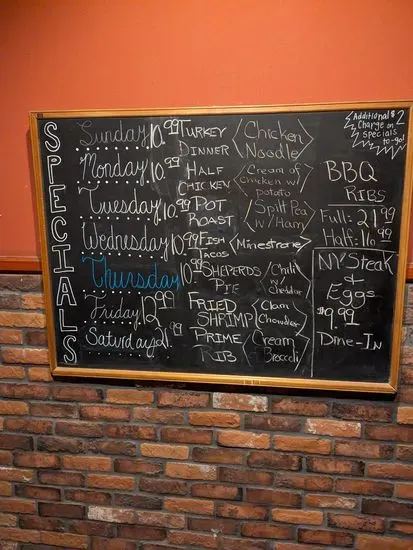 SPECIALS
Additional $2
Charge on
Specials
to-go!
Sunday 10.99 TURKEY DINNER Chicken Noodle
Monday 10.99 HALF CHICKEN Cream of chicken w/ potato
Tuesday 10.99 POT ROAST Split Pea w/ Ham
Wednesday 10.99 FISH TACOS Minestrone
Thursday 10.99 SHEPERDS PIE Chili w/ cheddar
Friday 12.99 FRIED SHRIMP Clam Chowder
Saturday 21.99 PRIME RIB Cream Broccoli
BBQ
RIBS
Full: 21.99
Half: 16.99
NY STEAK
&
EGGS
$9.99
DINE-IN